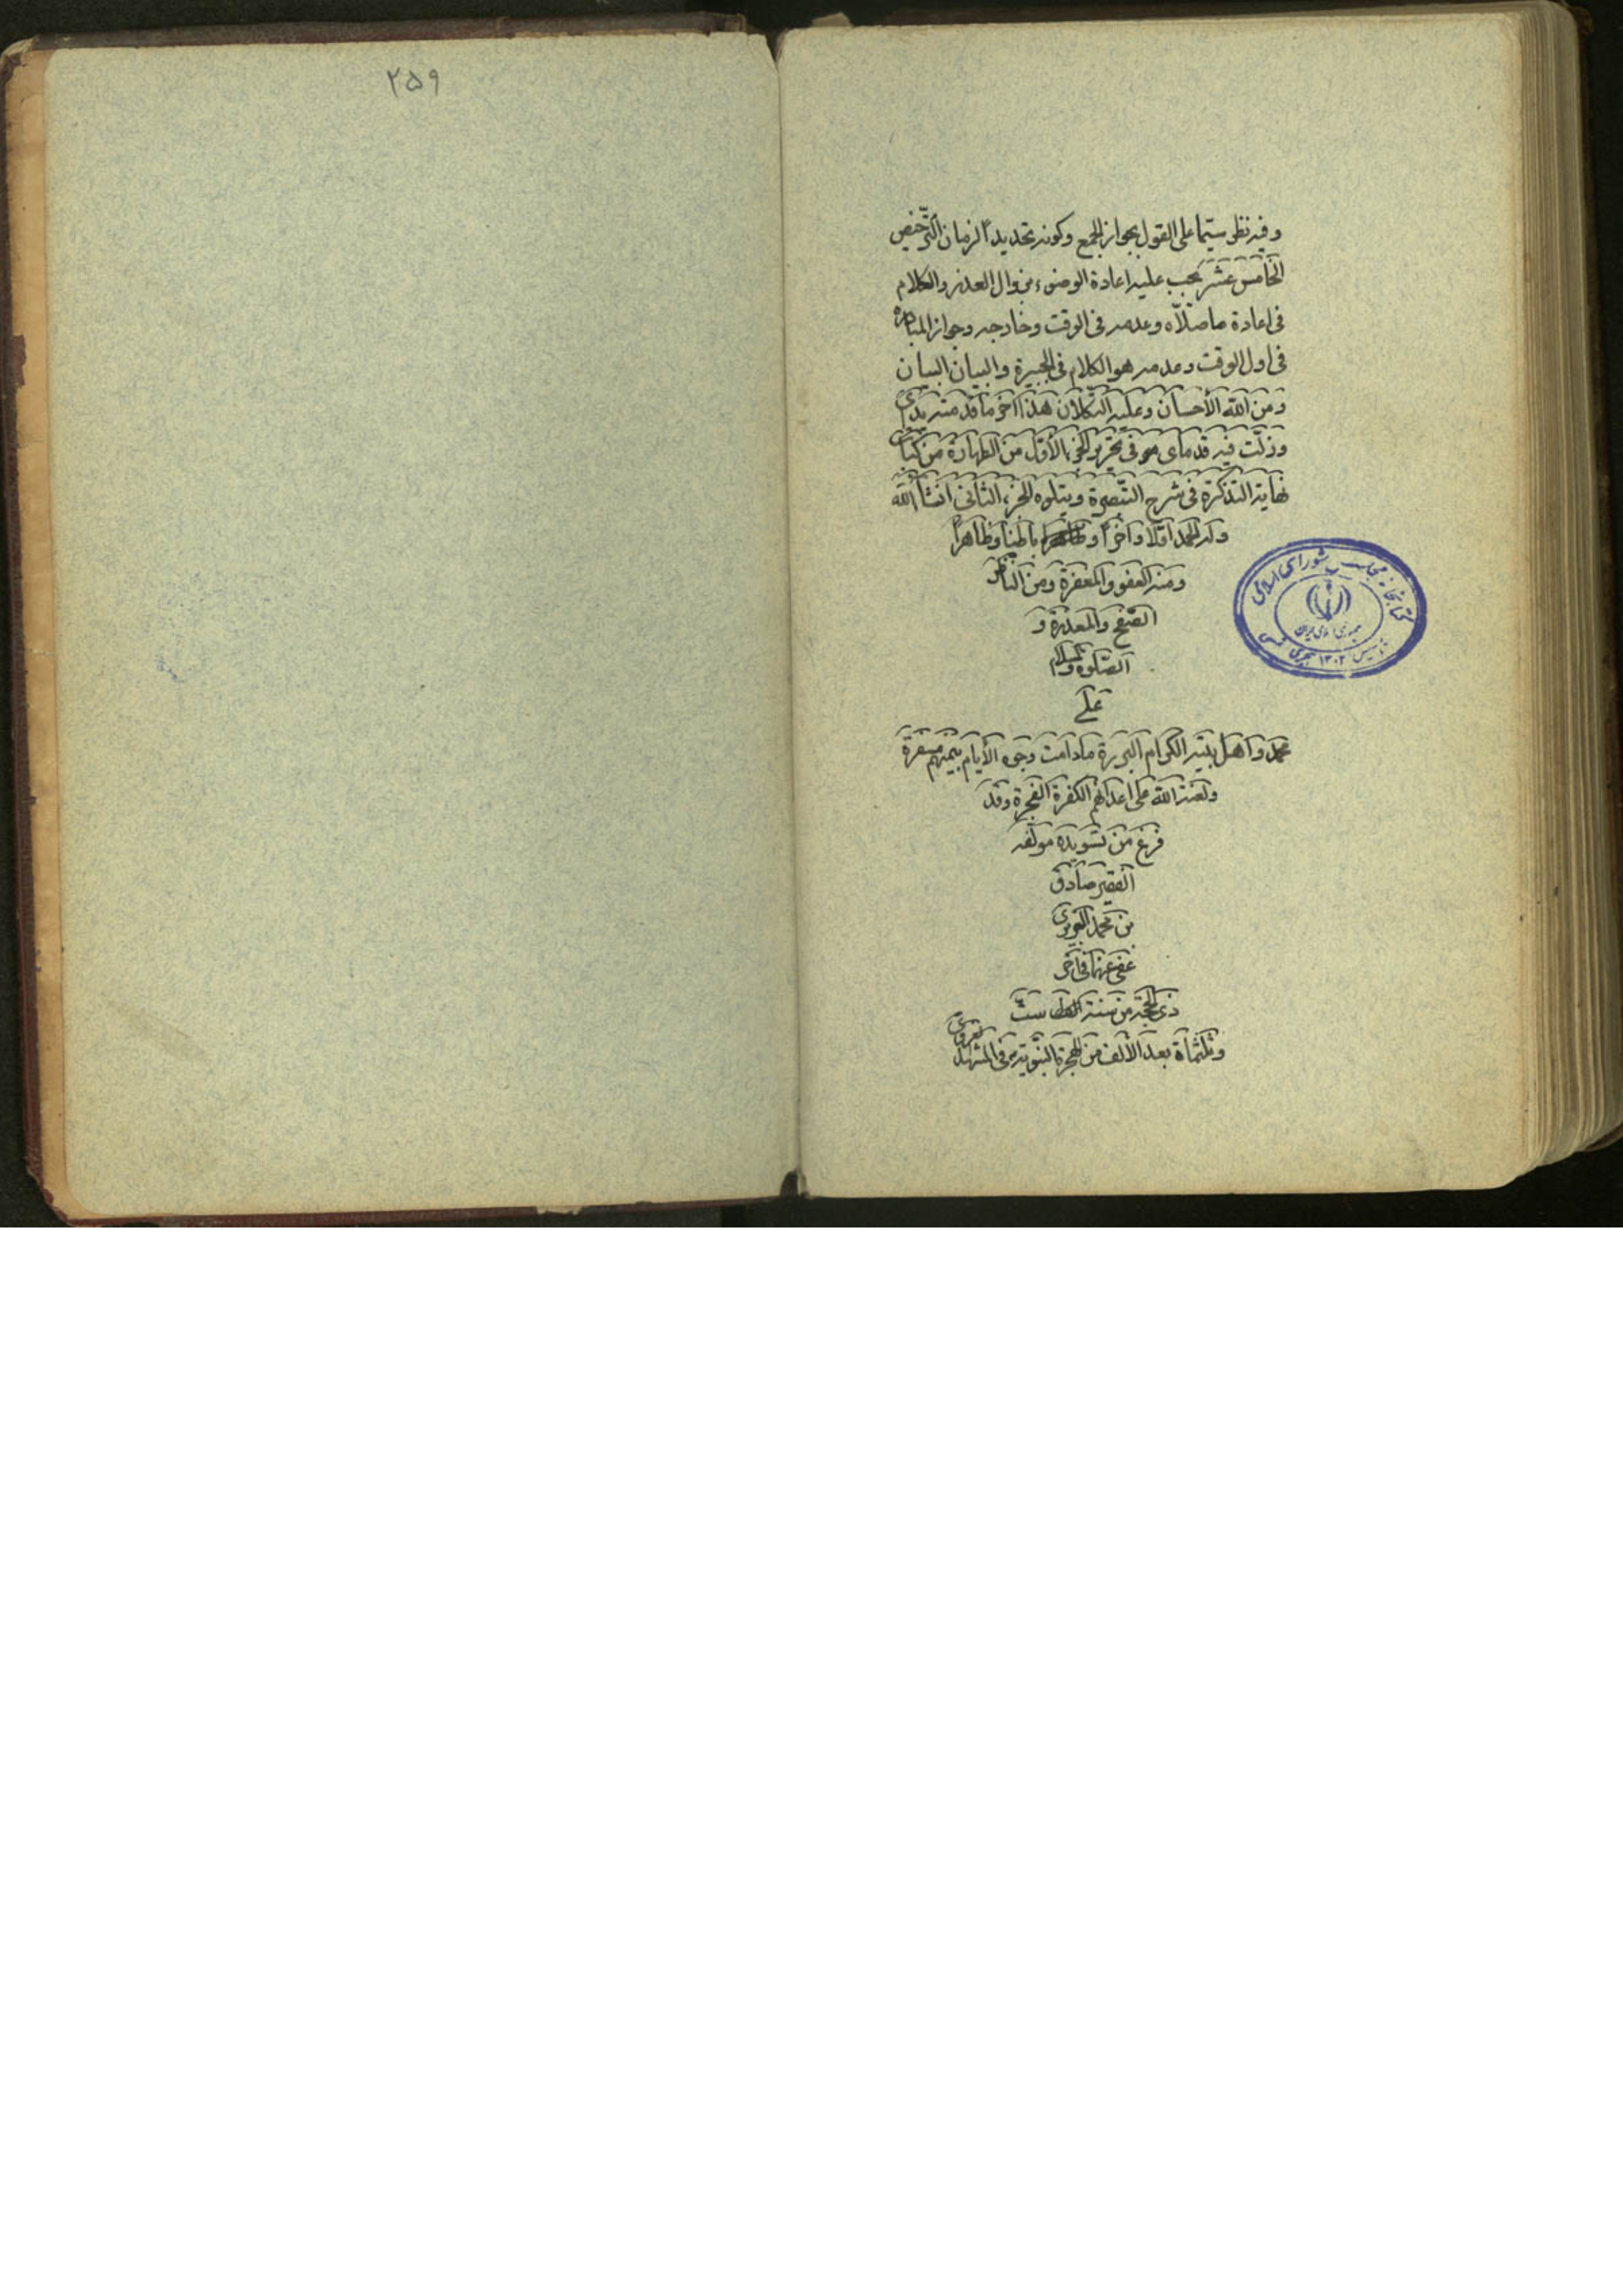 وفیه نظر سیّما علی القول بجواز الجمع وکونه تحدیداً لزمان الترخیص
الخامس عشر یجب علیه اعادة الوضوء بزوال العذر والکلام
فی اعادة ماصلّاه وعدمه فی الوقت وخارجه وجواز المبادرة
فی اول الوقت وعدمه هو الکلام فی الجبیرة والبیان البیان
ومن الله الأحسان وعلیه التکلان هذا آخر ما قدمته یدی
وزلّت فیه قدمای فی تحریر الجزء الأول من الطهارة من کتاب
نهایة التذکرة فی شرح التبصرة ویتلوه الجزء الثانی انشاء الله
وله الحمد اولاً وآخراً و باطناً وظاهراً
ومنه العفو والمغفرة ومن الناظر
الصفح والمعذرة و
الصلوة والسلام
علی
محمد واهل بیته الکرام البررة مادامت وجوه الأیام بیمنهم مسفرة
ولعنة الله علی اعدائهم الکفرة الفجرة وقد
فرغ من تسویده مؤلفه
الفقیر صادق
بن محمد التبریزی
عفی عنهما فی آخر
ذی الحجة من سنة ست
وثلثمأة بعد الألف من الهجرة النبویة فی المشهد الغروی
کتابخانه مجلس شورای اسلامی
جمهوری اسلامی ایران
تأسیس ۱۳۰۲ هجری شمسی
۲۵۹